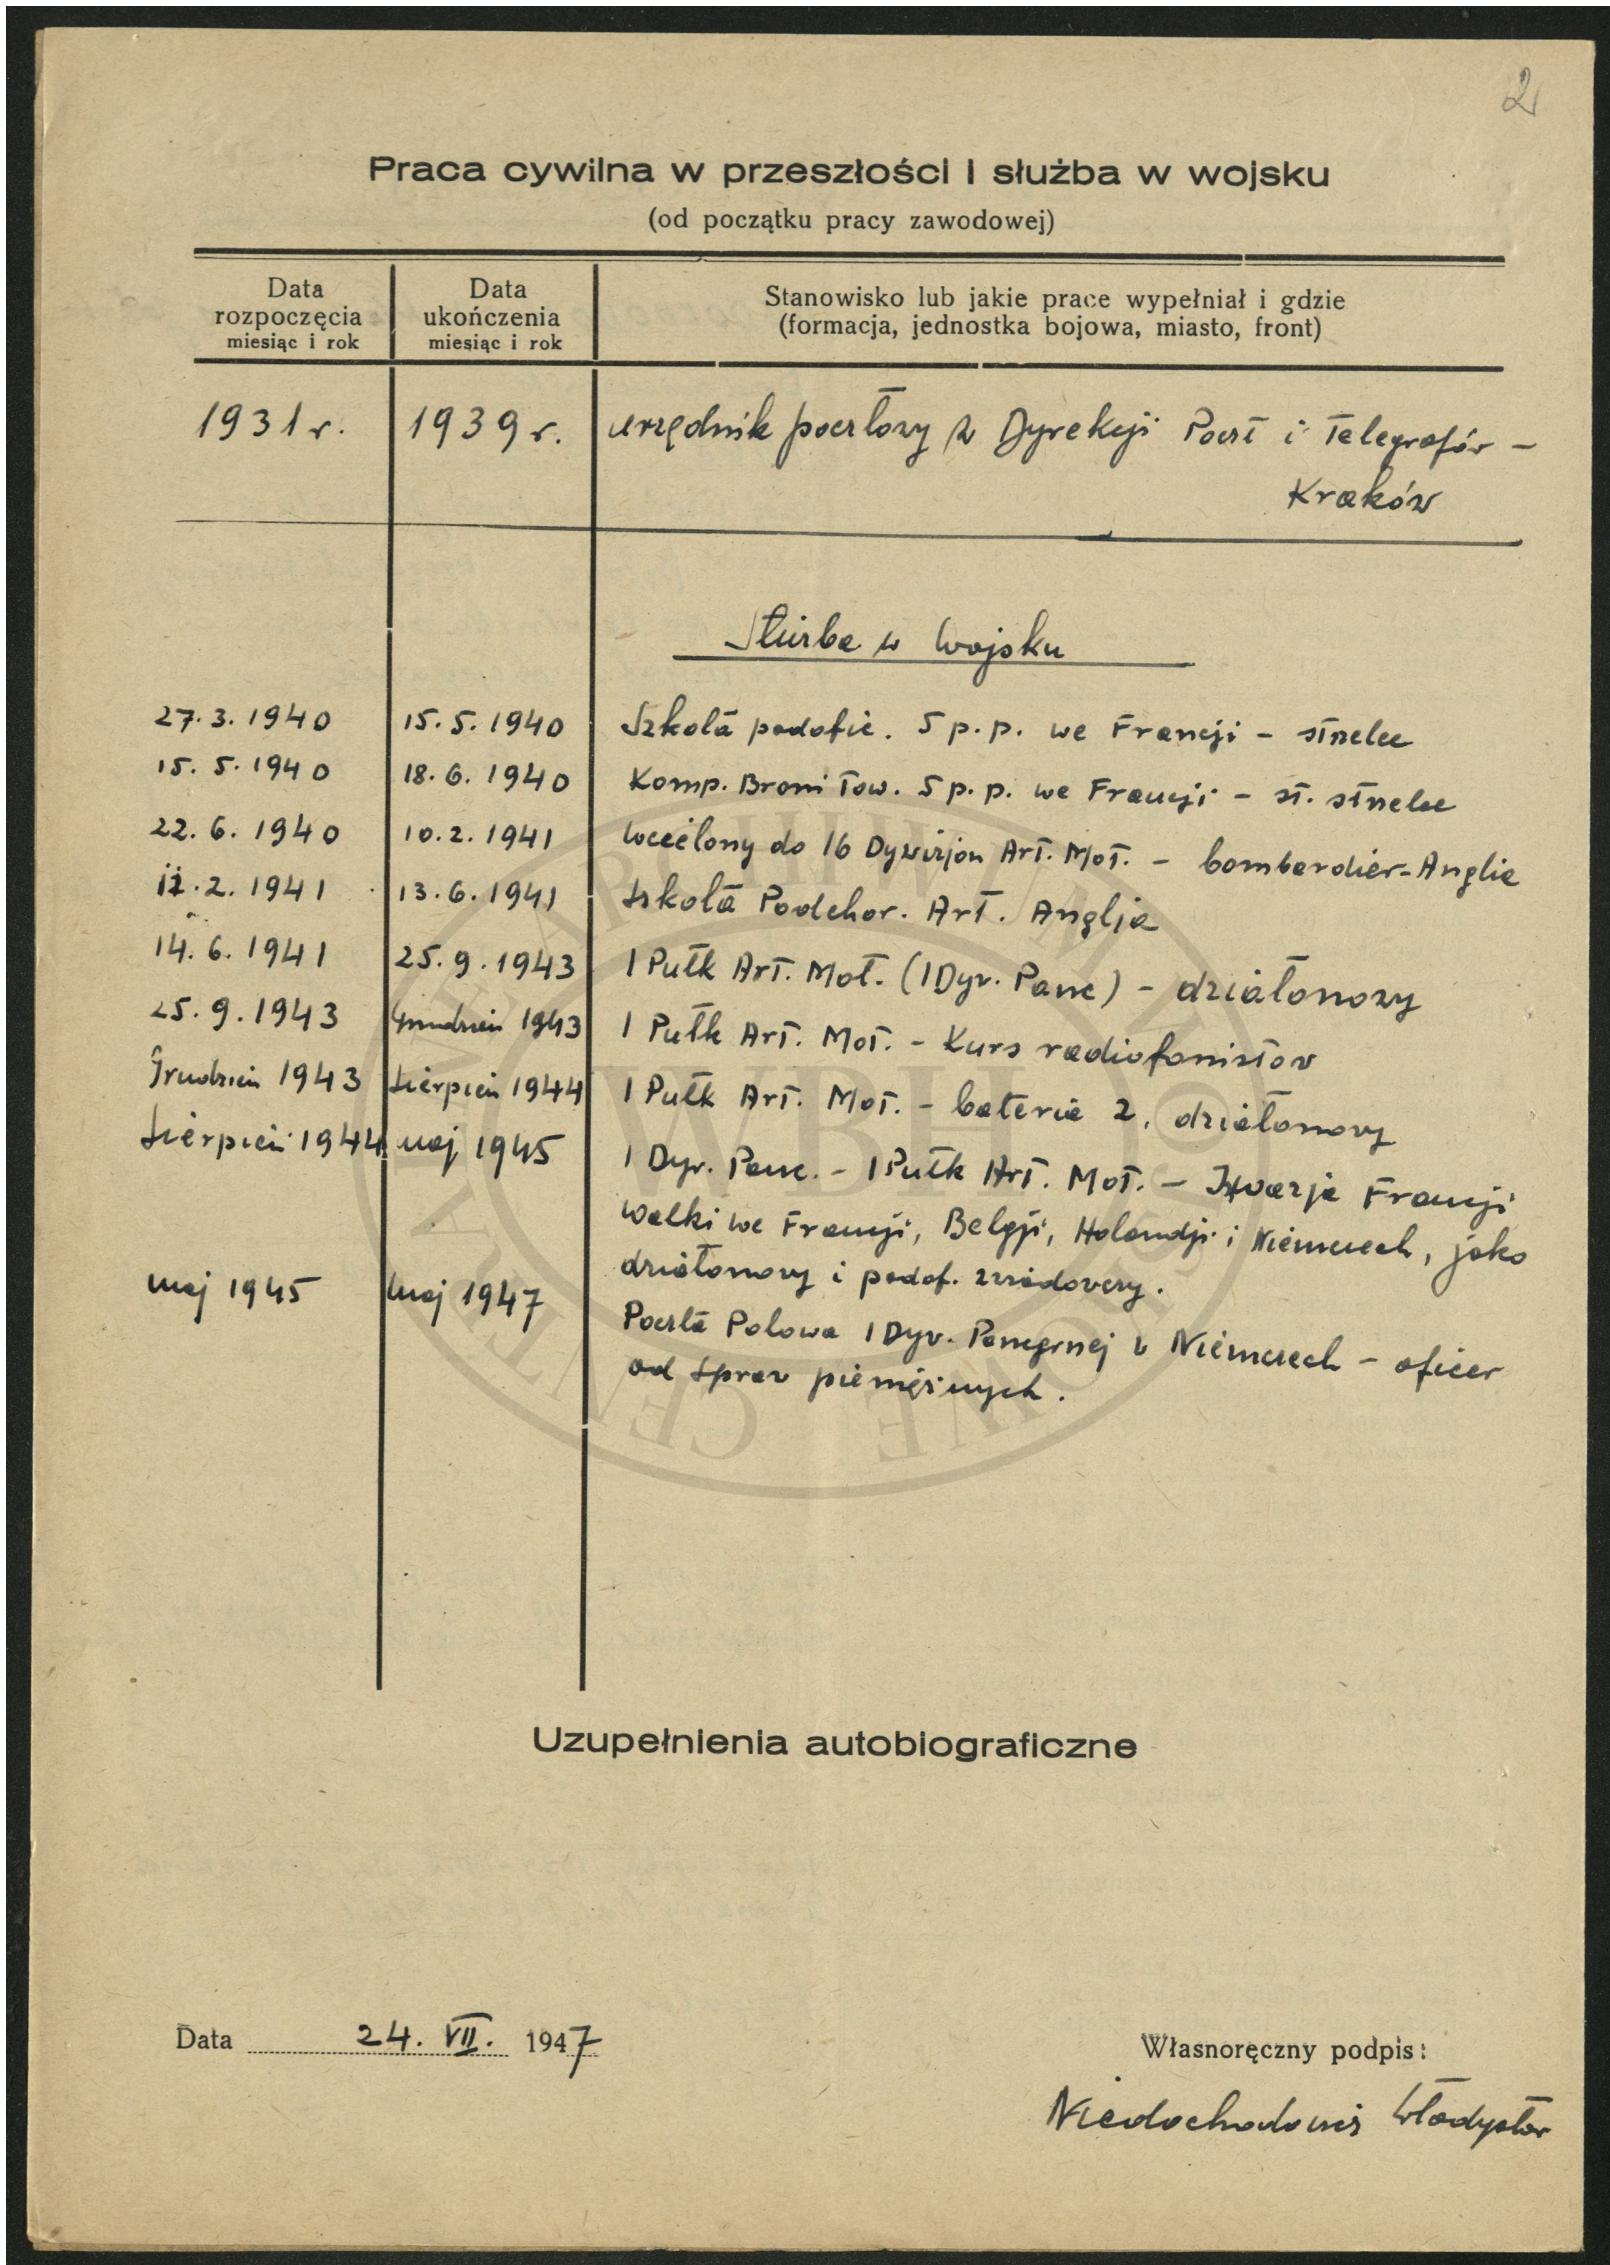 2
Praca cywilna w przeszłości i służba w wojsku
(od początku pracy zawodowej)
Data rozpoczęcia miesiąc i rok
Data ukończenia miesiąc i rok
Stanowisko lub jakie prace wypełniał i gdzie
(formacja, jednostka bojowa, miasto, front)
1931 r. 1939 r. urzędnik pocztowy w Dyrekcji Poczt i Telegrafów –
Kraków
Służba w Wojsku
27.3.1940 15.5.1940 Szkoła podofic. 5 p.p. we Francji – strzelec
15.5.1940 18.6.1940 Komp. Broni Tow. 5 p.p. we Francji – st. strzelec
22.6.1940 10.2.1941 wcielony do 16 Dywizjon Art. Mot. – bombardier – Anglia
12.2.1941 13.6.1941 Szkoła Podchor. Art. Anglja
14.6.1941 25.9.1943 1 Pułk Art. Mot. (1 Dyw. Panc) – działonowy
25.9.1943 Grudzień 1943 1 Pułk Art. Mot. – Kurs radiofonistów
Grudzień 1943 Sierpień 1944 1 Pułk Art. Mot. – bateria 2, działonowy
Sierpień 1944 maj 1945 1 Dyw. Panc. – 1 Pułk Art. Mot. – Inwazja Francji
walki we Francji, Belgji, Holandji i Niemczech, jako
działonowy i podof. zwiadowczy.
maj 1945 maj 1947 Poczta Polowa 1 Dyw. Pancernej w Niemczech – oficer
od spraw pieniężnych.
Uzupełnienia autobiograficzne
Data 24. VII. 1947
Własnoręczny podpis:
Władysław
CENTRALNE ARCHIWUM WOJSKOWE
WBH